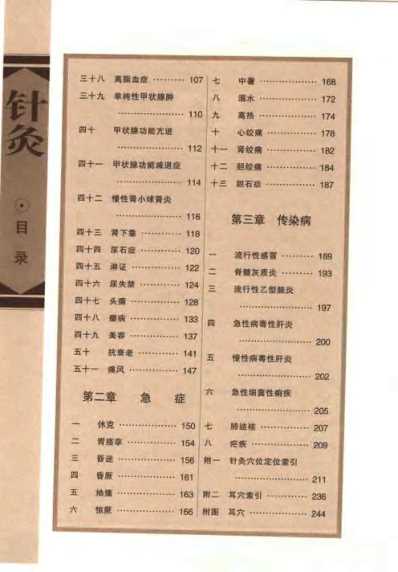 针灸
目录
三十八 高脂血症 ………… 107
三十九 单纯性甲状腺肿
………………… 110
四十 甲状腺功能亢进
………………… 112
四十一 甲状腺功能减退症
………………… 114
四十二 慢性肾小球肾炎
………………… 116
四十三 肾下垂 ………… 118
四十四 尿石症 ………… 120
四十五 淋证 …………… 122
四十六 尿失禁 ………… 124
四十七 头痛 …………… 128
四十八 瘿病 …………… 133
四十九 美容 …………… 137
五十 抗衰老 ………… 141
五十一 痛风 …………… 147
第二章 急症
一 休克 ……………… 150
二 胃痉挛 …………… 154
三 昏迷 ……………… 156
四 昏厥 ……………… 161
五 抽搐 ……………… 163
六 惊厥 ……………… 166
七 中暑 ……………… 168
八 溺水 ……………… 172
九 高热 ……………… 174
十 心绞痛 …………… 178
十一 肾绞痛 …………… 182
十二 胆绞痛 …………… 184
十三 胆石症 …………… 187
第三章 传染病
一 流行性感冒 ……… 189
二 脊髓灰质炎 ……… 193
三 流行性乙型脑炎
………………… 197
四 急性病毒性肝炎
………………… 200
五 慢性病毒性肝炎
………………… 202
六 急性细菌性痢疾
………………… 205
七 肺结核 …………… 207
八 疟疾 ……………… 209
附一 针灸穴位定位索引
………………… 211
附二 耳穴索引 ………… 236
附图 耳穴 ……………… 244